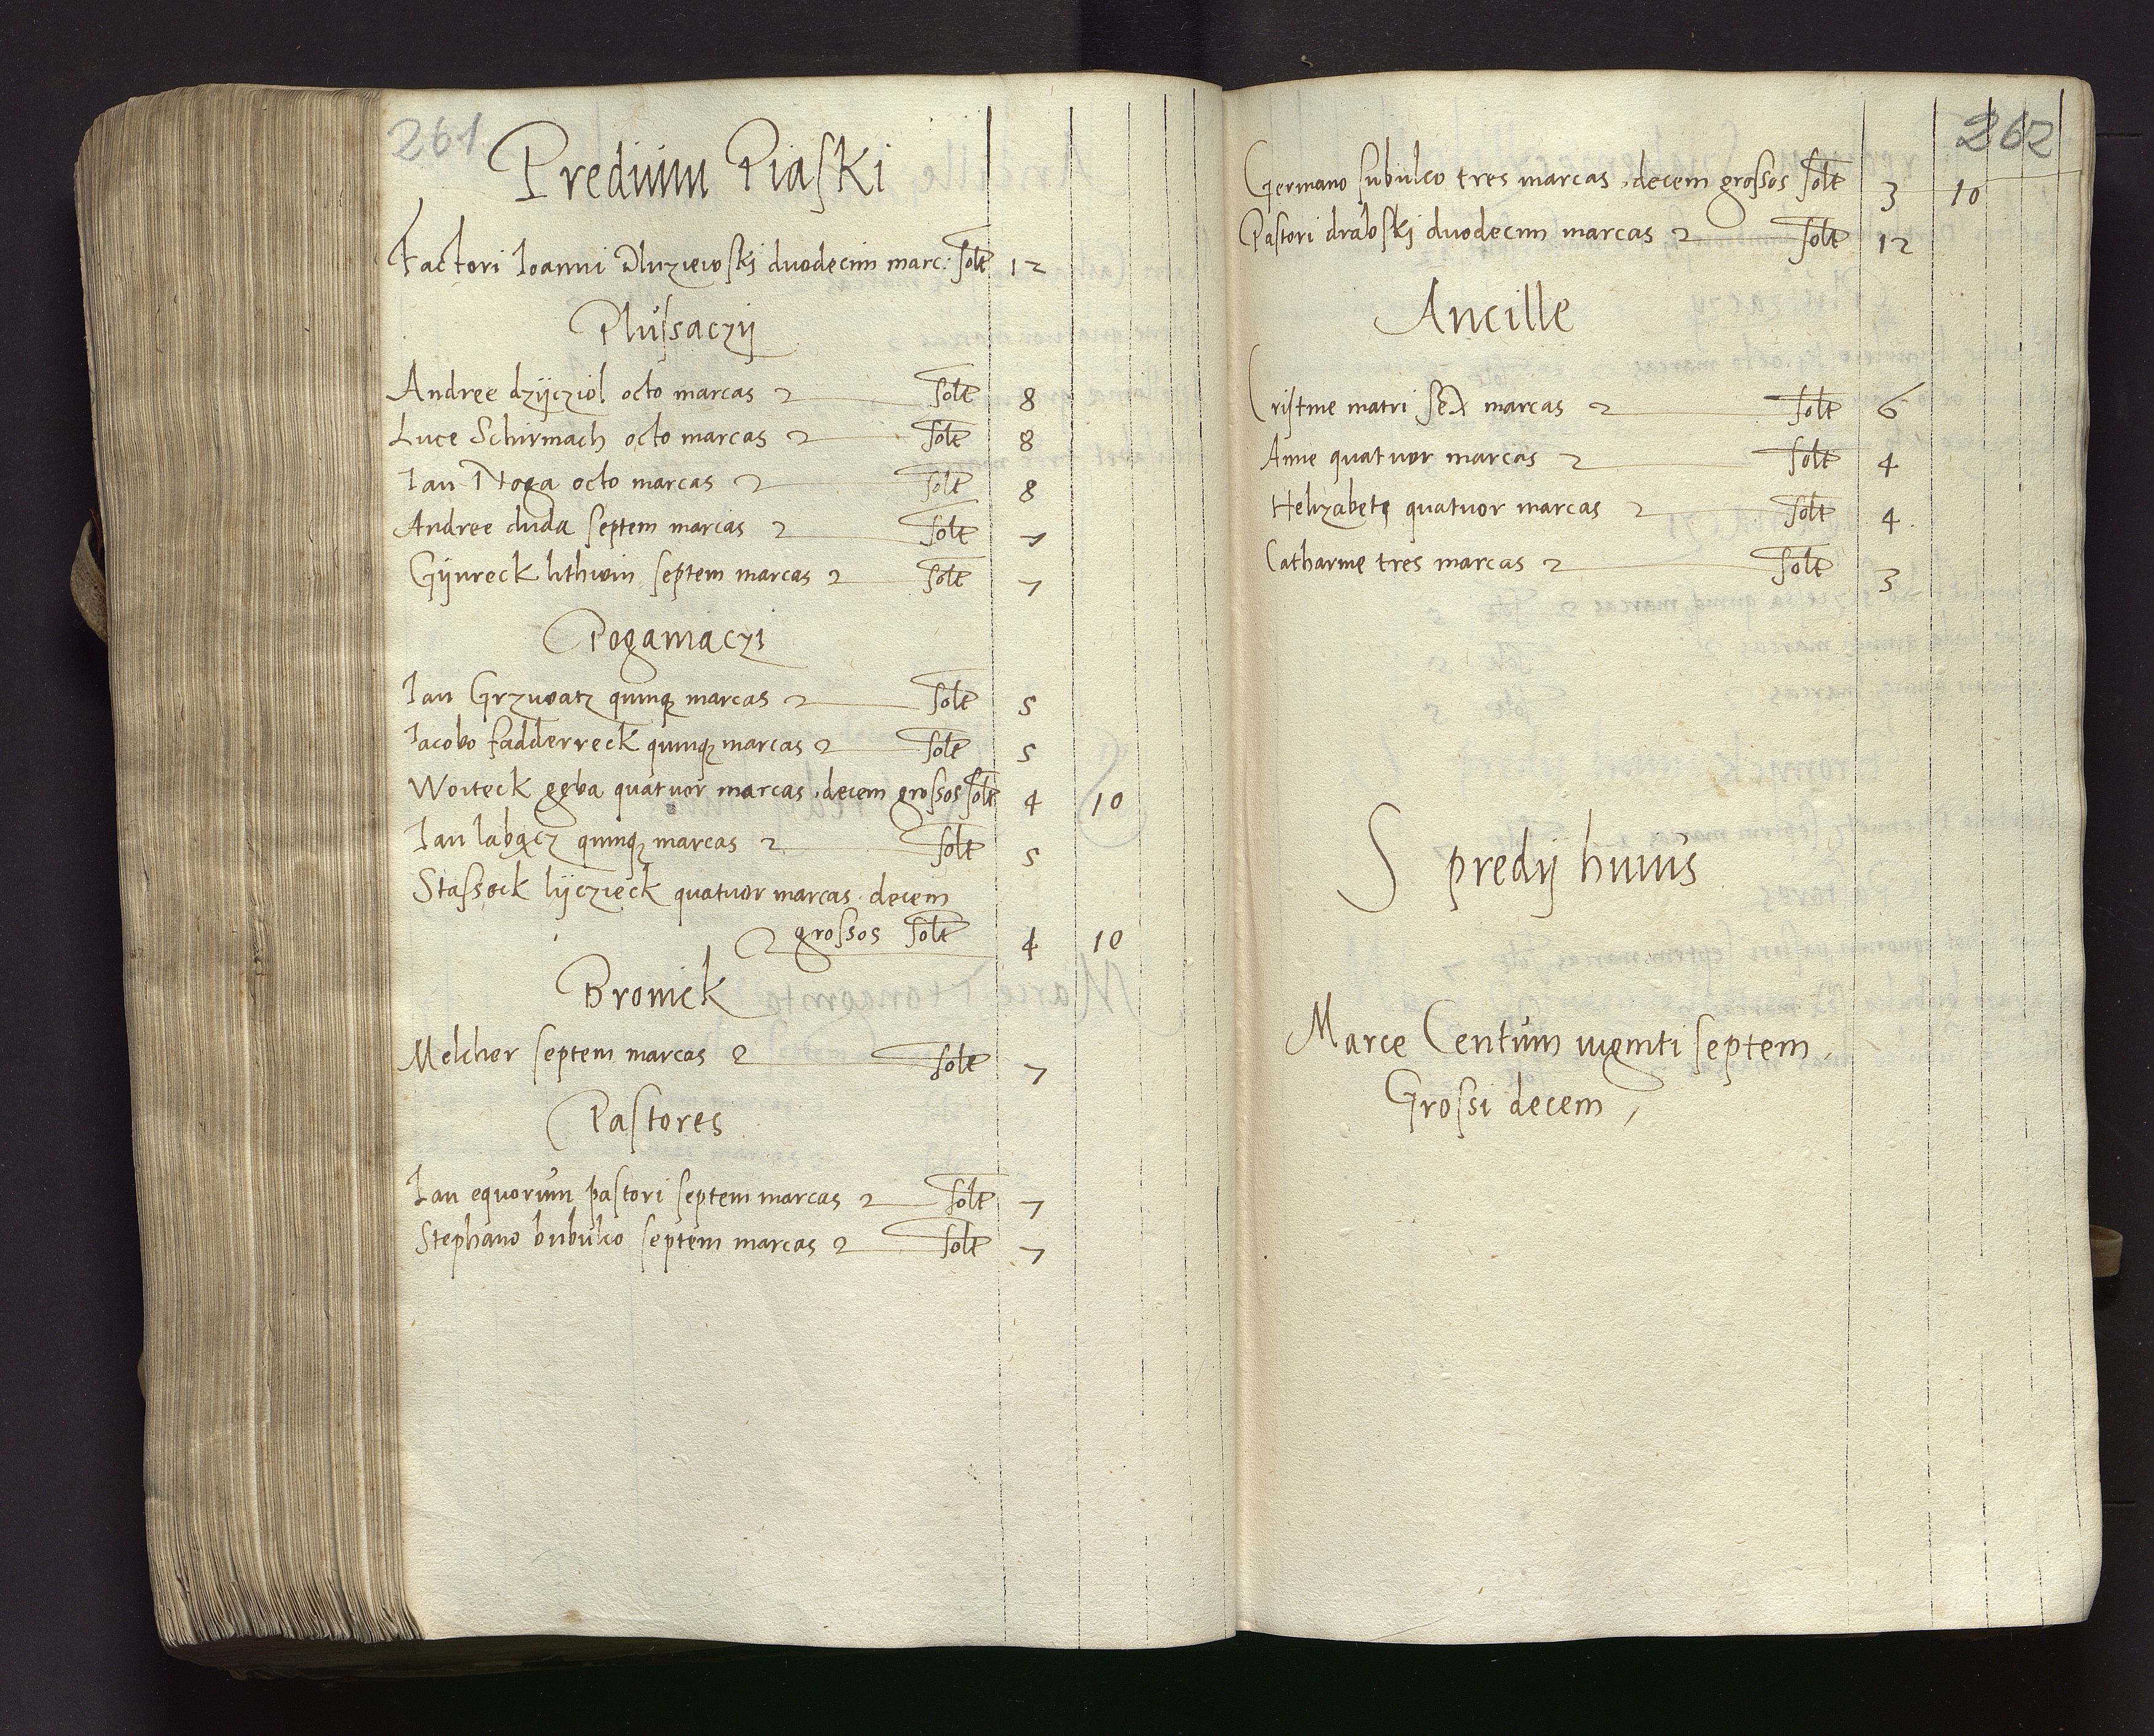 261
Predium Piaski
Factori Ioanni Dluzewski duodecim marc: solt 12
Plussaczÿ
Andree dzÿcziol octo marcas solt 8
Luce Schirmach octo marcas solt 8
Ian Noga octo marcas solt 8
Andree duda septem marcas solt 7
Gÿnreck lithwin septem marcas solt 7
Poganiaczi
Ian Grzwatz quinqz marcas solt 5
Iacobo fadderreck quinqz marcas solt 5
Woiteck gęba quatuor marcas decem grossos solt 4 10
Ian labącz quinqz marcas solt 5
Stasseck lÿczieck quatuor marcas decem
grossos solt 4 10
Bronick
Melcher septem marcas solt 7
Pastores
Ian equorum pastori septem marcas solt 7
Stephano bubulco septem marcas solt 7
262
Germano subulco tres marcas decem grossos solt 3 10
Pastori drabski duodecim marcas solt 12
Ancille
Cristine matri sex marcas solt 6
Anne quatuor marcas solt 4
Helizabete quatuor marcas solt 4
Catharine tres marcas solt 3
S predÿ huius
Marce Centum viginti septem
Grossi decem